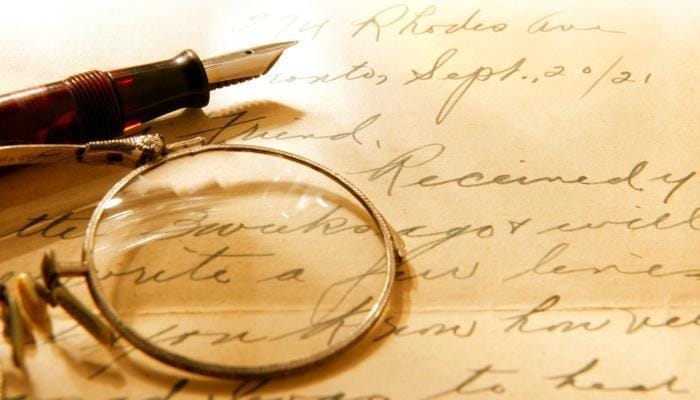 274 Rhodes Ave
ronto, Sept., 20/21
Friend,
Received y
tter 3 weeks ago & will
write a few lines
you know how ve
always to hear